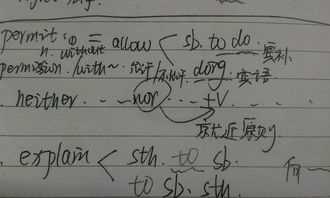 permit: ⓥ = allow < sb. to do. 宾补
n. without
permission. with~ 允许/ doing. 宾语
neither ... nor ... +V. . . .
就近原则
explain < sth. to sb.
to sb. sth.